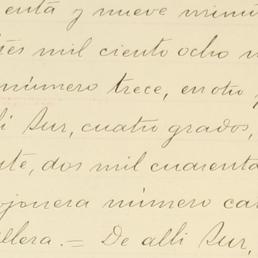 enta y nueve minu
tres mil ciento ocho m
número trece, en otro
li Sur, cuatro grados,
te, dos mil cuarenta
ojonera número ca
llera. = De alli Sur,